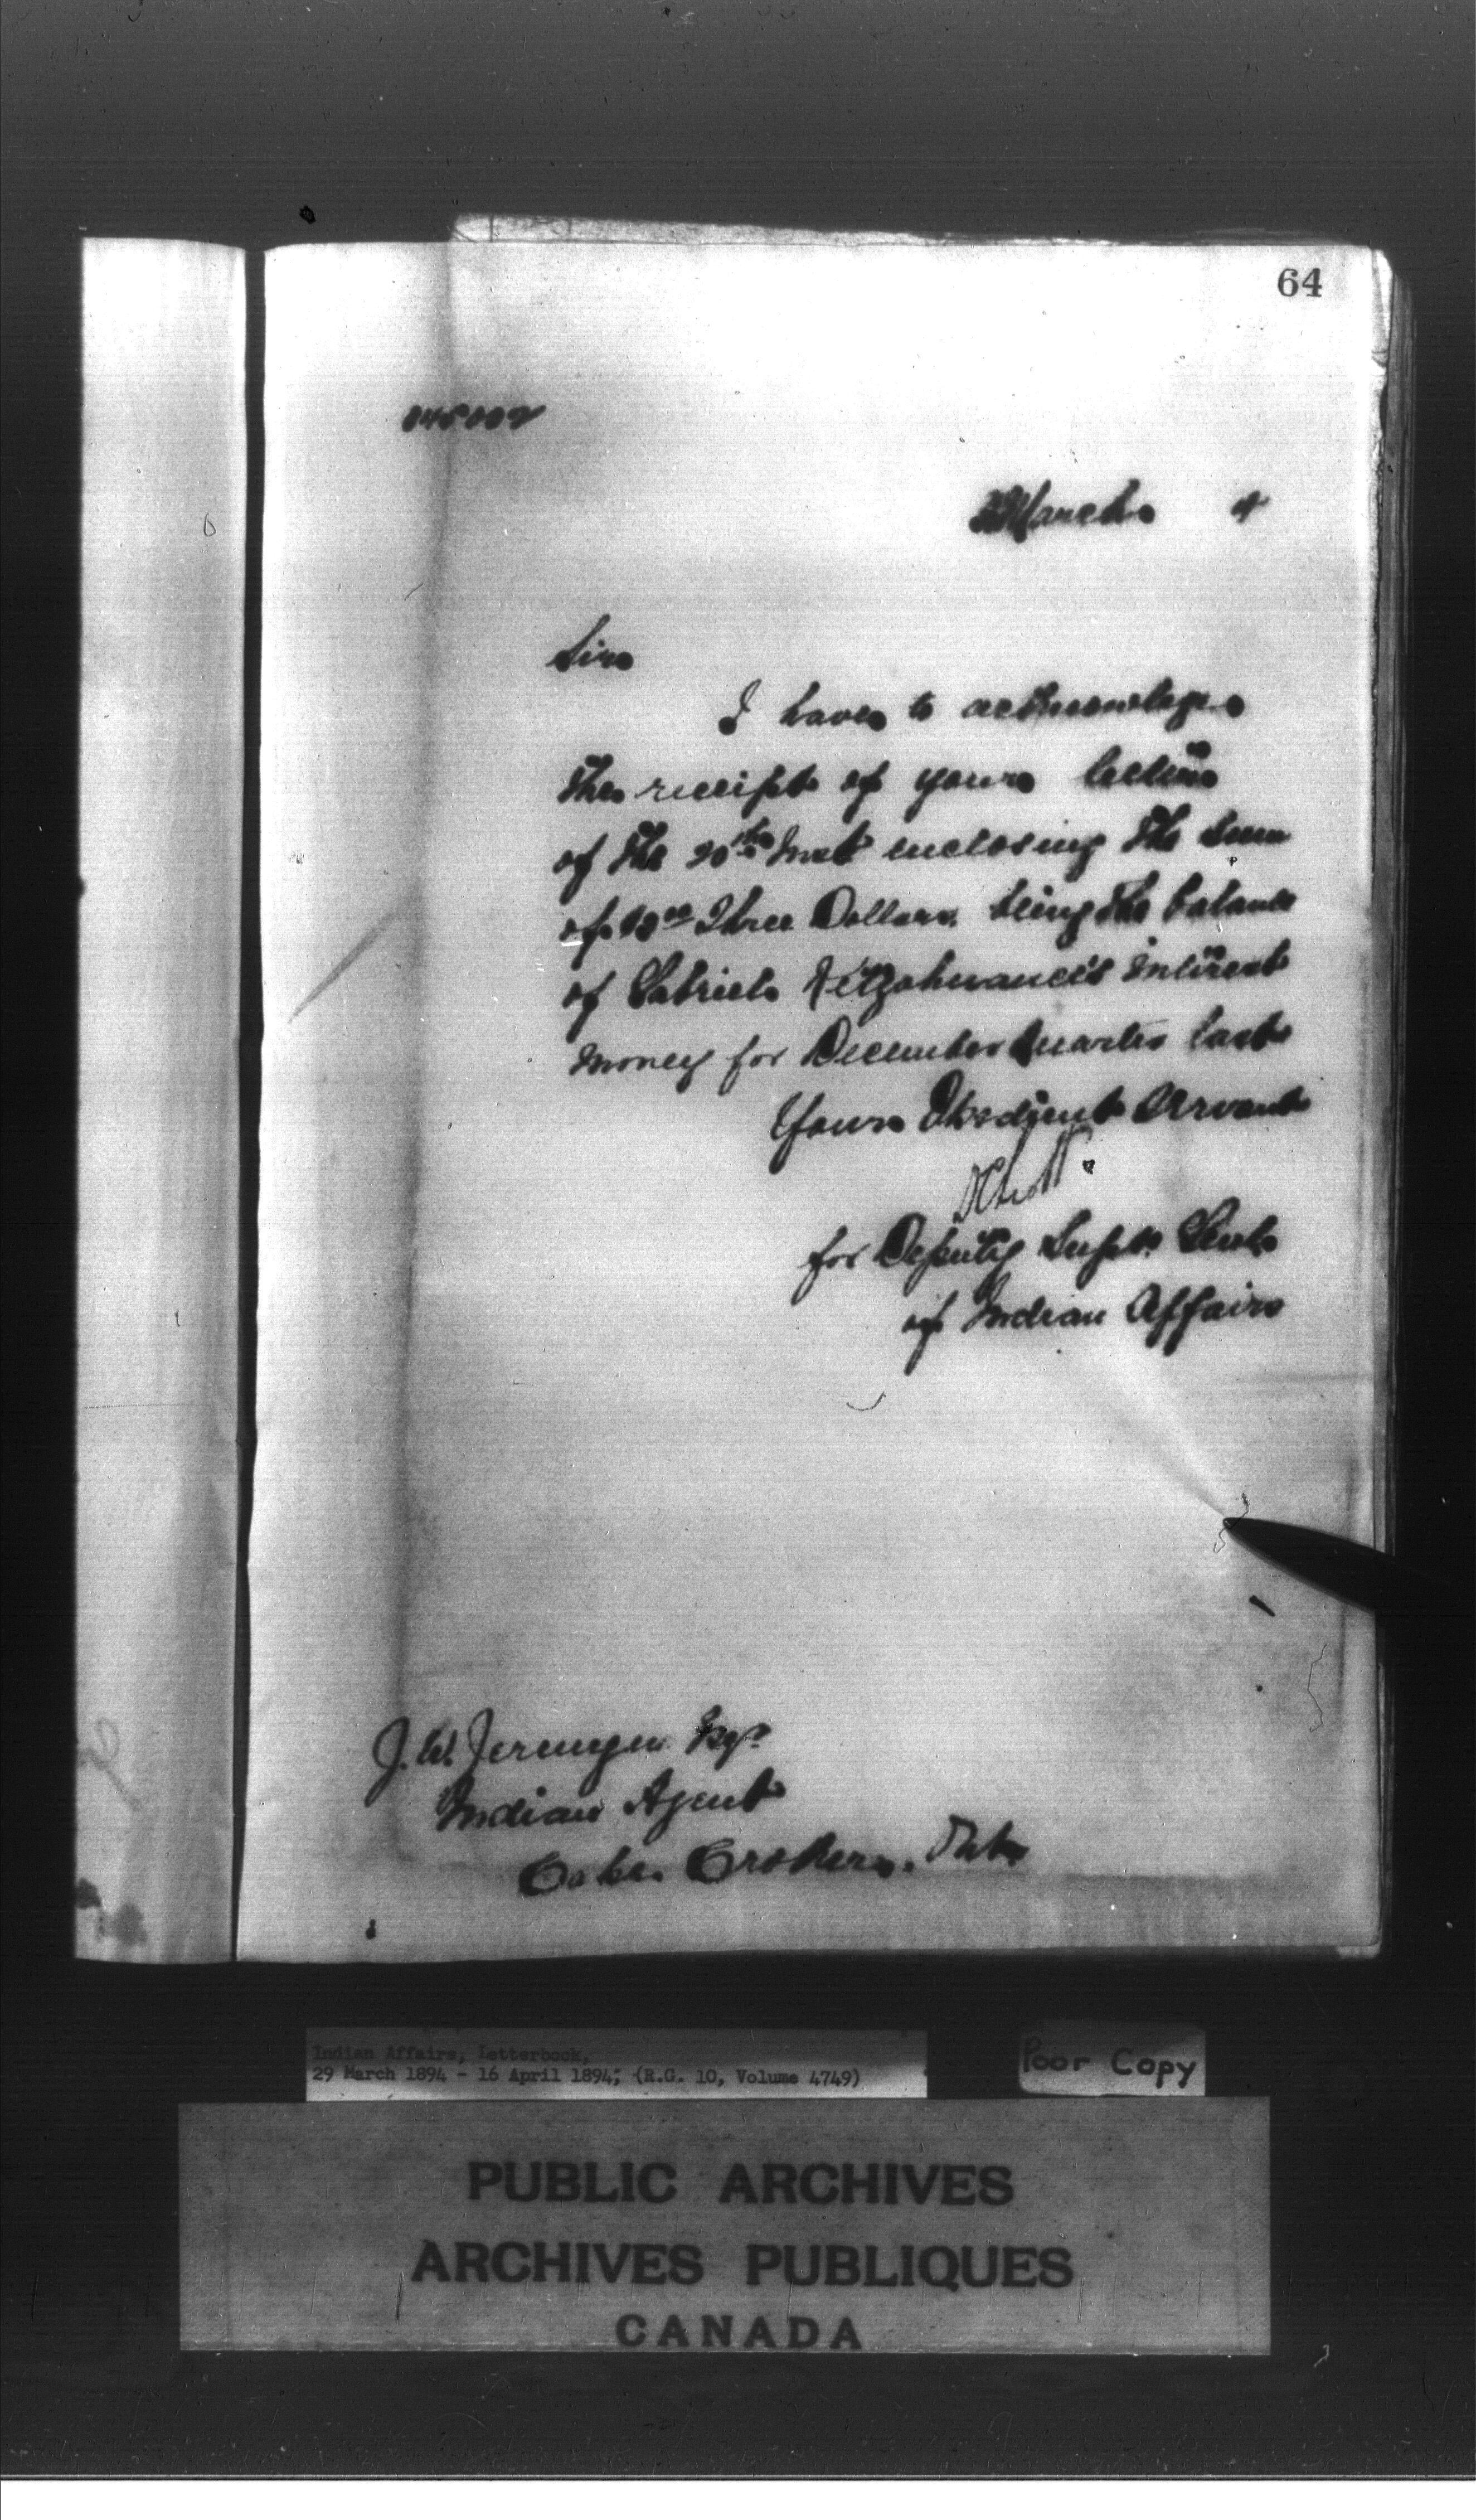 64
March 4
Sir
I have to acknowledge
the receipt of your letter
of the 20th Inst enclosing the sum
of $3.00 Three Dollars, being the balance
of Gabriel interest
money for December Quarter last
Your Obedient Servant
for Deputy Supt. Genl.
of Indian Affairs
J. W. Jermyn Esqr
Indian Agent
Cape Croker, Ont.
Indian Affairs, Letterbook,
29 March 1894 - 16 April 1894; (R.G. 10, Volume 4749)
Poor Copy
PUBLIC ARCHIVES
ARCHIVES PUBLIQUES
CANADA